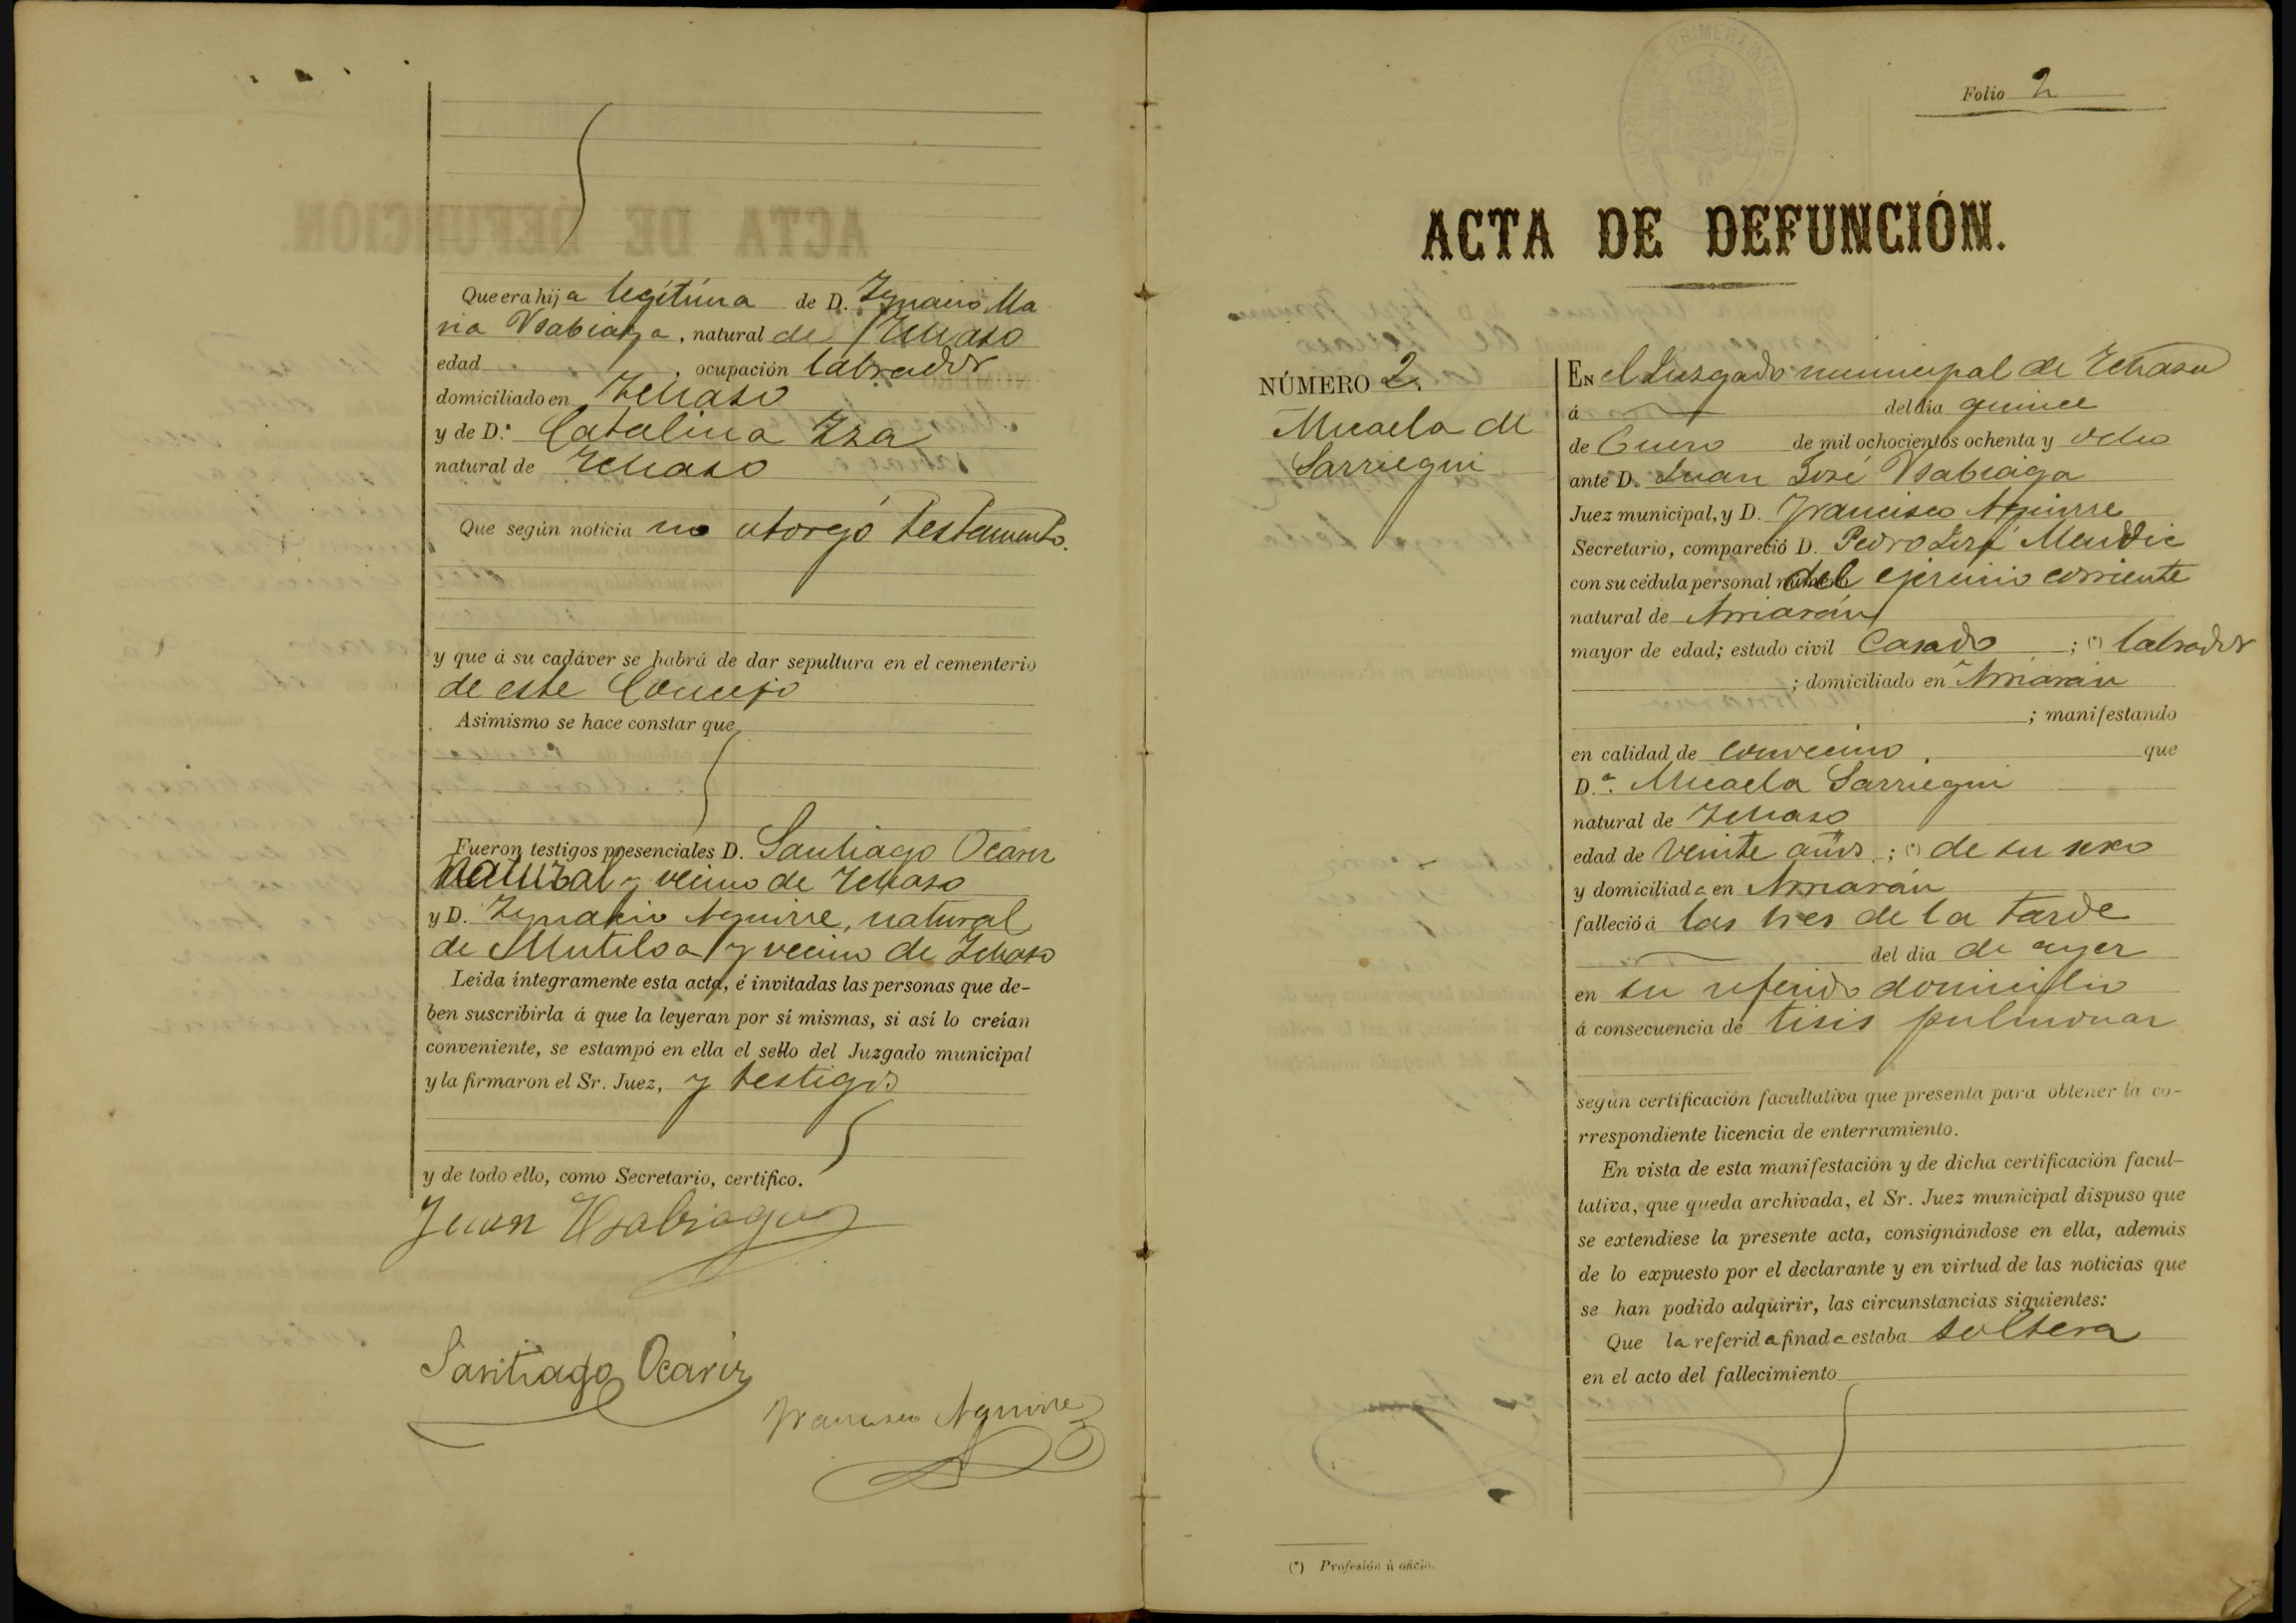 Que era hija legítima de D. Ygnacio Ma
ria Usabiaga, natural de Ychaso
edad , ocupación labrador
domiciliado en Ychaso
y de D.ª Catalina Yza
natural de Ychaso
Que según noticia no otorgó testamento.
y que á su cadáver se habrá de dar sepultura en el cementerio
de este Concejo
Asimismo se hace constar que
Fueron testigos presenciales D. Santiago Ocariz
natural y vecino de Ychaso
y D. Ygnacio Aguirre, natural
de Mutiloa y vecino de Ychaso
Leida íntegramente esta acta, é invitadas las personas que de-
ben suscribirla á que la leyeran por sí mismas, si así lo creían
conveniente, se estampó en ella el sello del Juzgado municipal
y la firmaron el Sr. Juez, y testigos
y de todo ello, como Secretario, certifico.
Juan Usabiaga
Santiago Ocariz
Francisco Aguirre
Folio 2
ACTA DE DEFUNCIÓN.
NÚMERO 2.
Micaela de
Sarriegui
EN el Juzgado municipal de Ychaso
á del día quince
de Enero de mil ochocientos ochenta y ocho
ante D. Juan José Usabiaga
Juez municipal, y D. Francisco Aguirre
Secretario, compareció D. Pedro José Mendie
con su cédula personal número del ejercicio corriente
natural de Arriarán
mayor de edad; estado civil Casado ; (*) labrador
; domiciliado en Arriarán
; manifestando
en calidad de convecino . que
D.ª Micaela Sarriegui
natural de Ychaso
edad de veinte años ; (*) de su sexo
y domiciliada en Arriarán
falleció á las tres de la tarde
del día de ayer
en su referido domicilio
á consecuencia de tisis pulmonar
según certificación facultativa que presenta para obtener la co-
rrespondiente licencia de enterramiento.
En vista de esta manifestación y de dicha certificación facul-
tativa, que queda archivada, el Sr. Juez municipal dispuso que
se extendiese la presente acta, consignándose en ella, además
de lo expuesto por el declarante y en virtud de las noticias que
se han podido adquirir, las circunstancias siguientes:
Que la referida finada estaba soltera
en el acto del fallecimiento
(*) Profesión ú oficio.